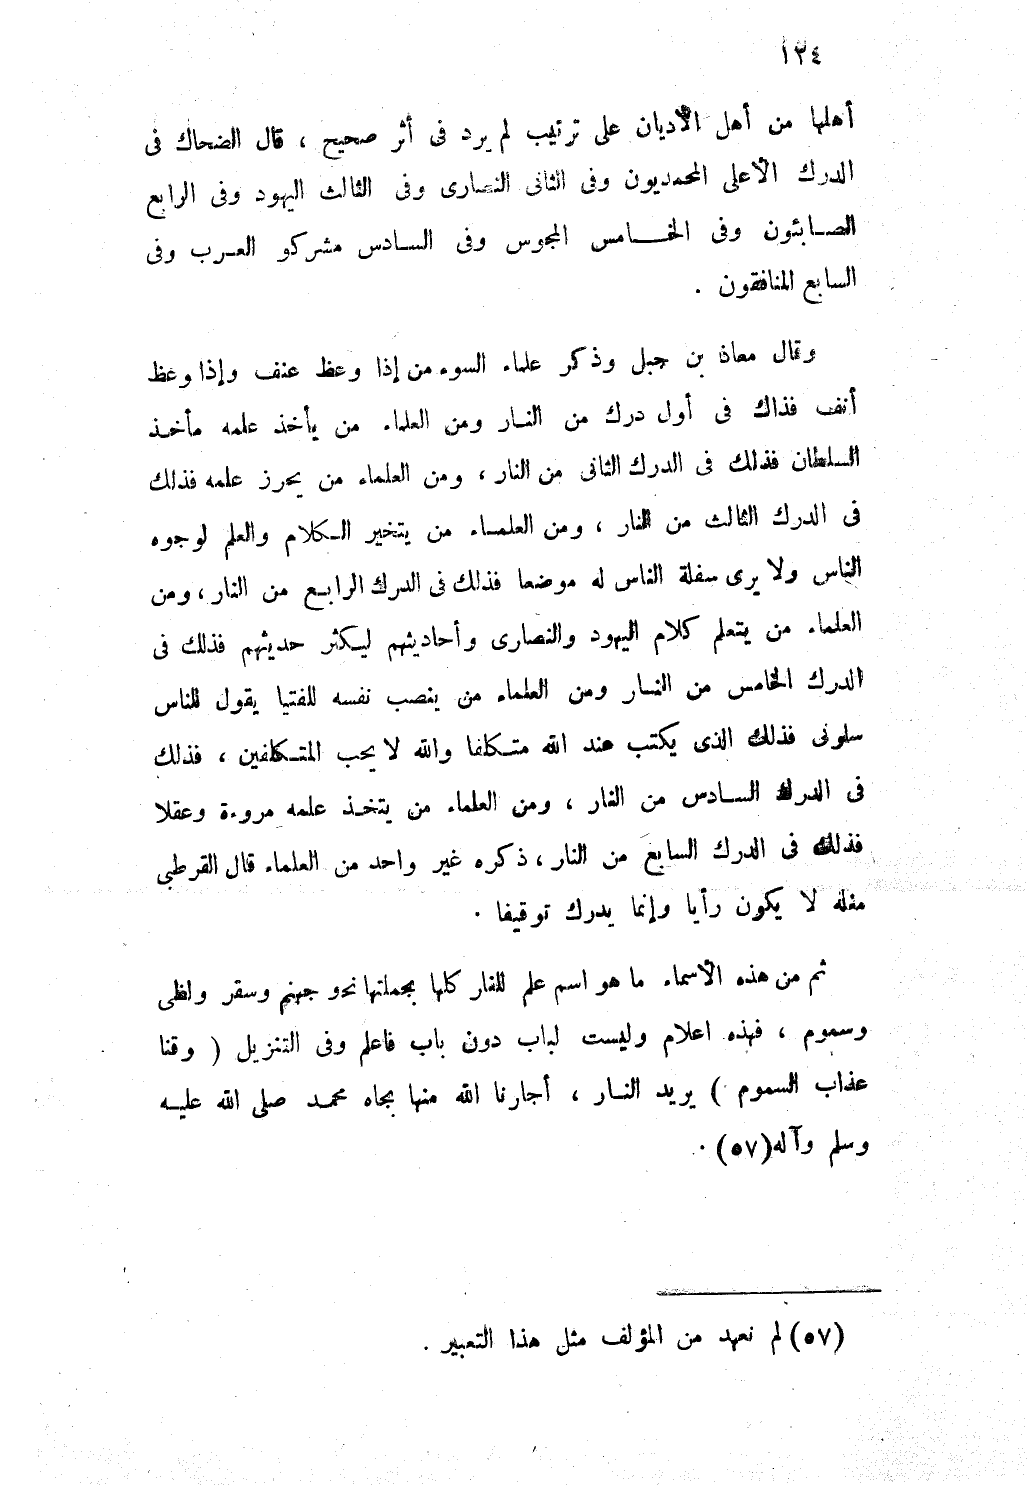 ١٣٤
أهلها من أهل الأديان على ترتيب لم يرد فى أثر صحيح ، قال الضحاك فى
الدرك الأعلى المحمديون وفى الثانى النصارى وفى الثالث اليهود وفى الرابع
الصابئون وفى الخامس المجوس وفى السادس مشركو العرب وفى
السابع المنافقون .
وقال معاذ بن جبل وذكر علماء السوء من إذا وعظ عنف وإذا وعظ
أنف فذاك فى أول درك من النار ومن العلماء من يأخذ علمه مأخذ
السلطان فذلك فى الدرك الثانى من النار ، ومن العلماء من يحرز علمه فذلك
فى الدرك الثالث من النار ، ومن العلماء من يتخير الكلام والعلم لوجوه
الناس ولا يرى سفلة الناس له موضعا فذلك فى الدرك الرابع من النار ، ومن
العلماء من يتعلم كلام اليهود والنصارى وأحاديثهم ليكثر حديثهم فذلك فى
الدرك الخامس من النار ومن العلماء من ينصب نفسه للفتيا يقول للناس
سلونى فذلك الذى يكتب عند الله متكلفا والله لا يحب المتكلفين ، فذلك
فى الدرك السادس من النار ، ومن العلماء من يتخذ علمه مروءة وعقلا
فذلك فى الدرك السابع من النار ، ذكره غير واحد من العلماء قال القرطبى
مثله لا يكون رأيا وإنما يدرك توقيفا .
ثم من هذه الأسماء ما هو اسم علم للنار كلها بجملتها نحو جهنم وسقر ولظى
وسموم ، فهذه اعلام وليست لباب دون باب فاعلم وفى التنزيل ( وقنا
عذاب السموم ) يريد النار ، أجارنا الله منها بجاه محمد صلى الله عليه
وسلم وآله(٥٧) .
(٥٧) لم نعهد من المؤلف مثل هذا التعبير .